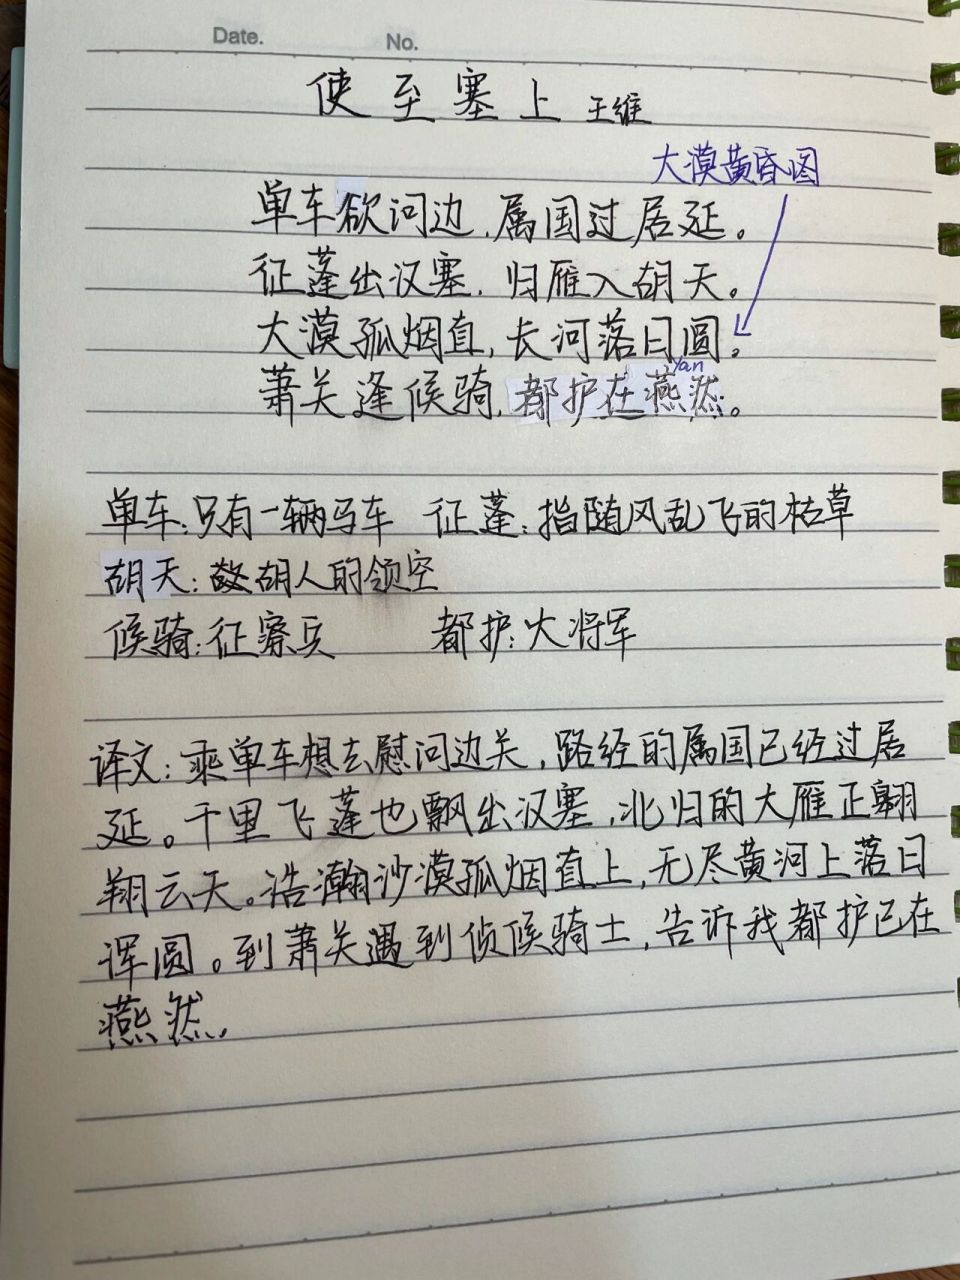 Date.
No.
使至塞上 王维
大漠黄昏图
单车欲问边,属国过居延。
征蓬出汉塞,归雁入胡天。
大漠孤烟直,长河落日圆。
yan
萧关逢候骑,都护在燕然。
单车:只有一辆马车 征蓬:指随风乱飞的枯草
胡天:胡人的领空
候骑:征察兵 都护:大将军
译文:乘单车想去慰问边关,路经的属国已经过居
延。千里飞蓬也飘出汉塞,北归的大雁正翱
翔云天。浩瀚沙漠孤烟直上,无尽黄河上落日
浑圆。到萧关遇到侦候骑士,告诉我都护已在
燕然.